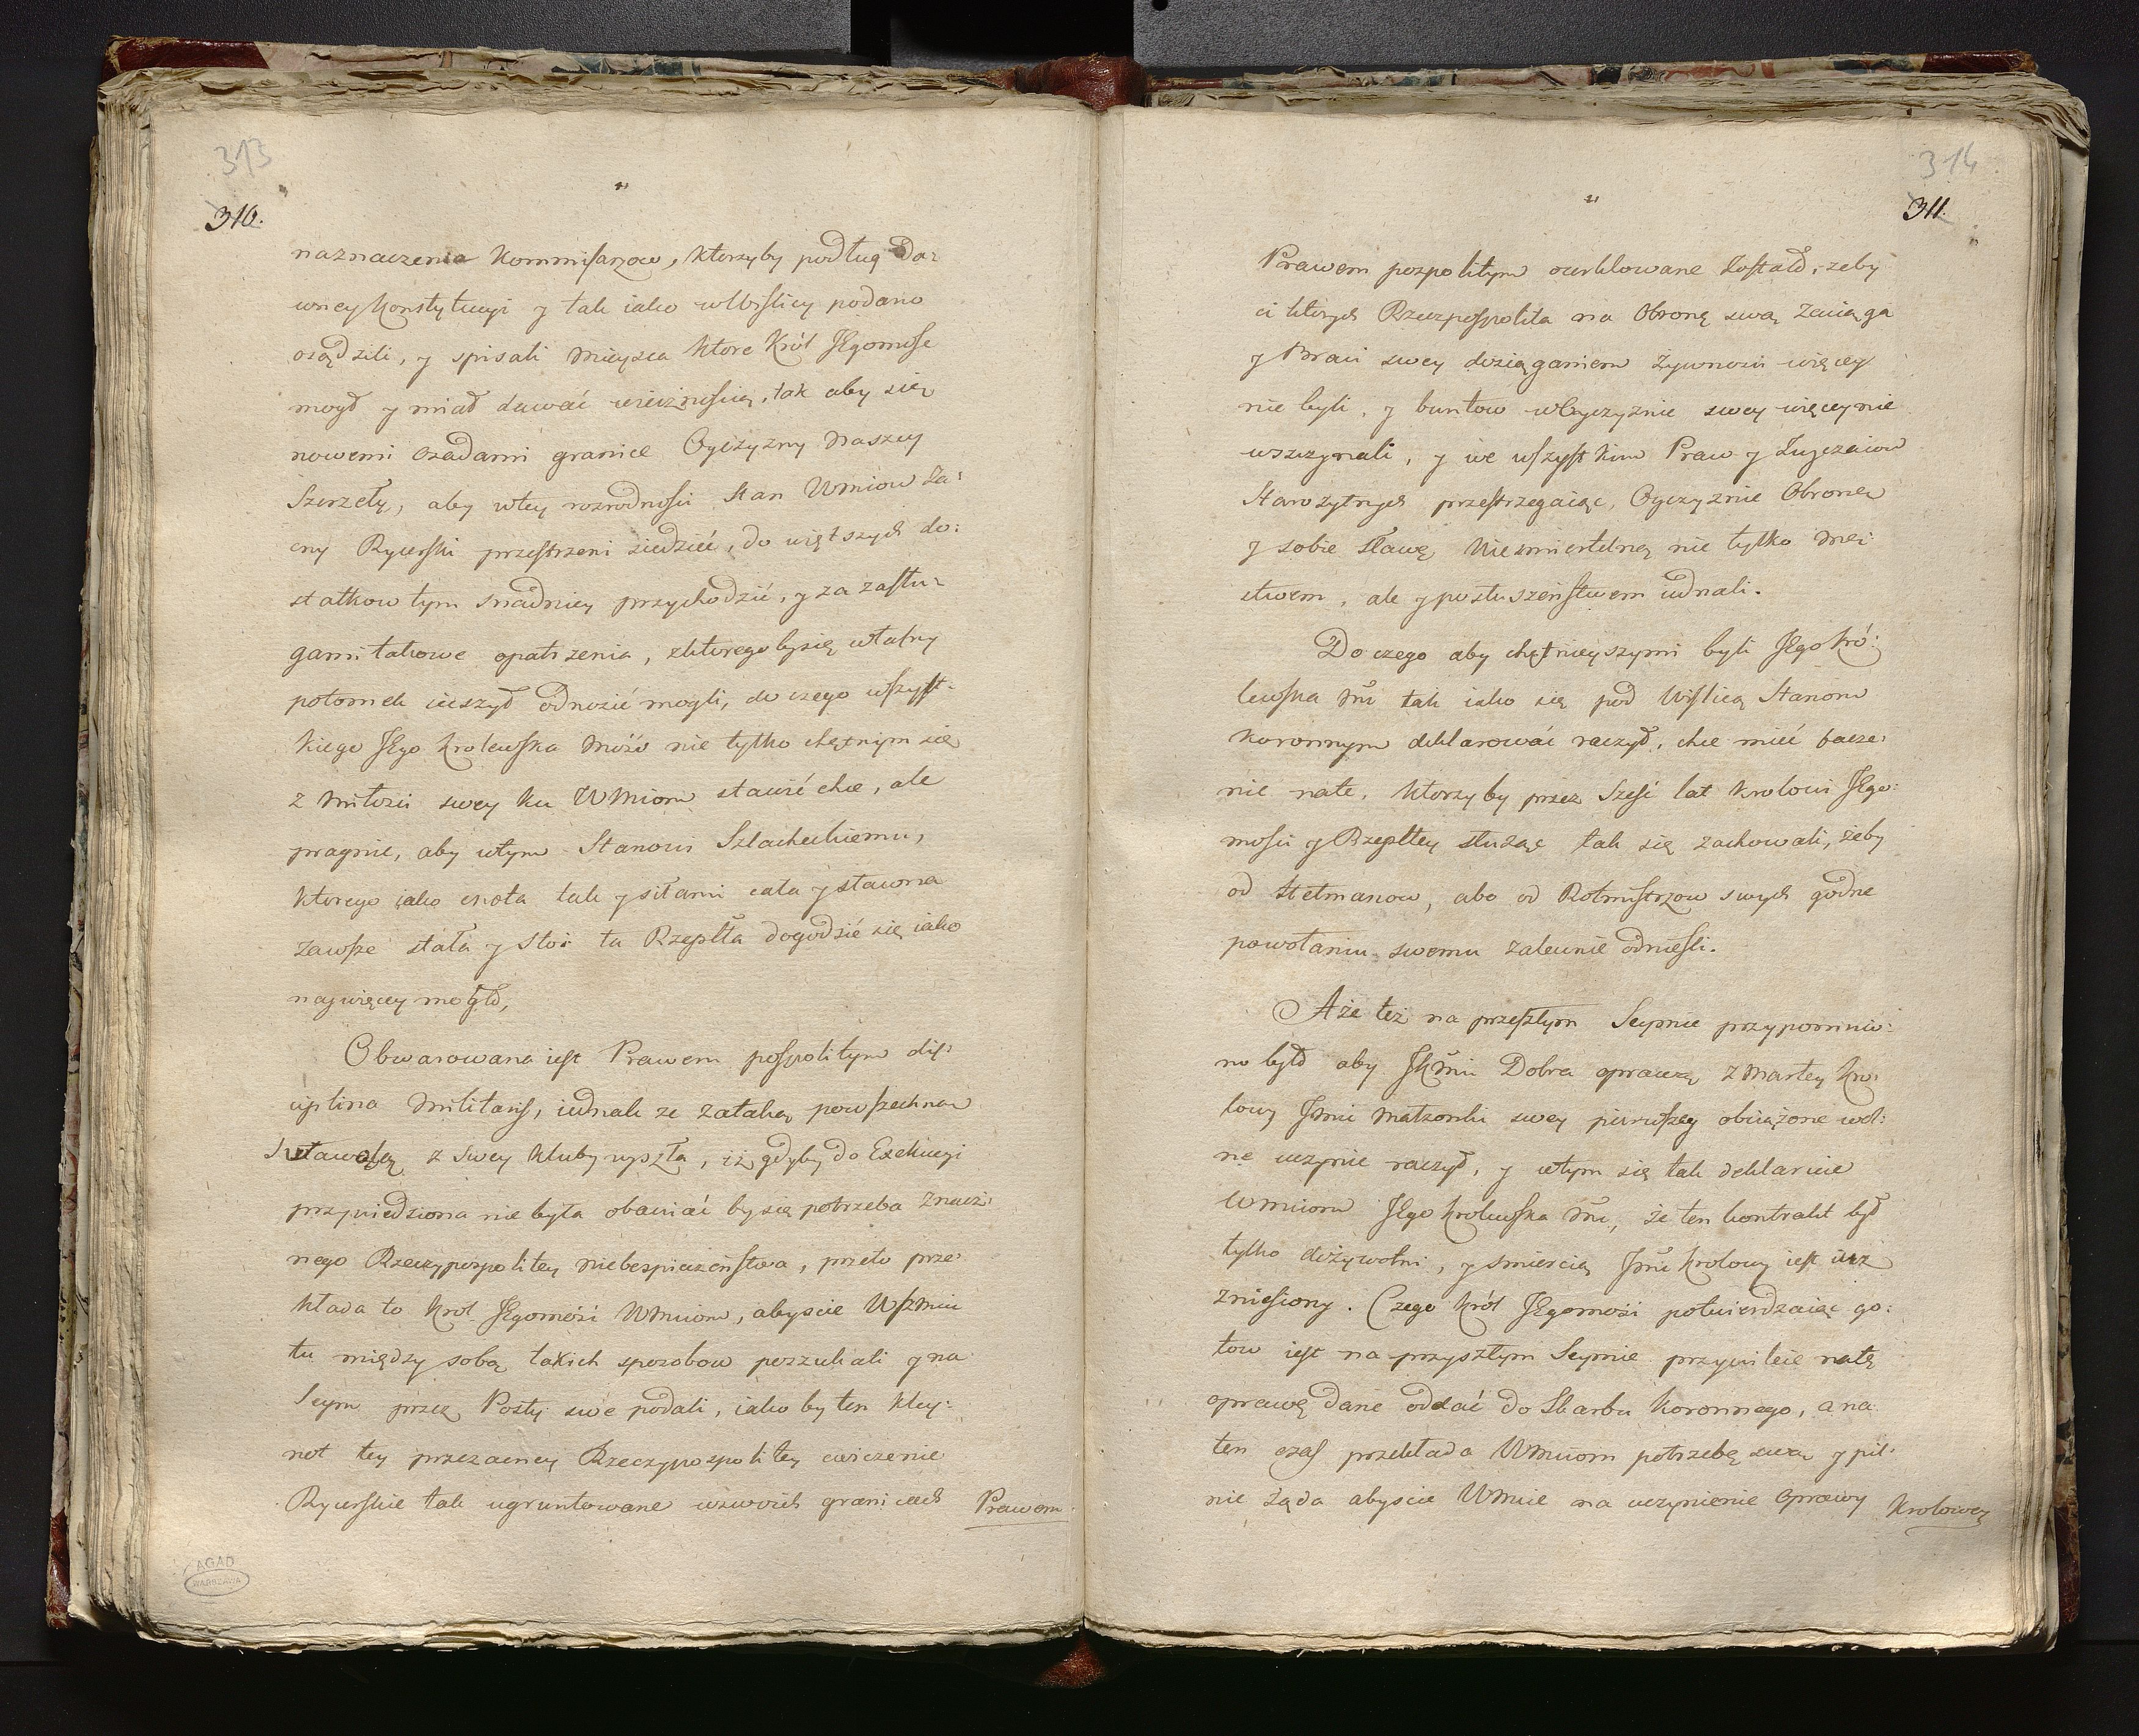 313
310.
naznaczenia Kommisarzow, ktorzyby podług da:
wney Konstytucyi y tak iako w Wislicy podano
osądzili, y spisali mieysca ktore Król JEgomość
mogł y miał dawać wiecznością, tak aby się
nowemi osadami granice Oyczyzny naszey
Szerzeły, aby w tey rozrodności Stan WMiow Za:
cny Rycerski przestrzeni siedzieć, do więtszych do:
statkow tym snadniey przychodzić, y za zasłu:
gami takowe opatrzenia, z ktoregoby się własny
potomek cieszył odnosić mogli, do czego wszyst:
kiego JEgo Krolewska Mość nie tylko chętnym się
z miłości swey ku WMiom stawić chce, ale
pragnie, aby w tym Stanowi Szlacheckiemu,
ktorego iako cnota tak y siłami cała y sławna
zawsze stała y stoi ta Rzeplta dogodzić się iako
naywięcey mogło,
Obwarowana iest Prawem pospolitym dis:
ciplina militaris, iednak ze zataką powszechną
z swey kluby wyszła, iż gdyby do Exekucyi
przywiedziona nie była obawiać by się potrzeba znacz:
nego Rzeczypospolitey niebespieczeństwa, przeto prze:
kłada to Krol JEgomość WMciom, abyscie WszMcie
tu między sobą takich sposobow poszukali y na
Seym przez Posły swe podali, iako by ten kley:
not tey przezacney Rzeczypospolitey cwiczenie
Rycerskie tak ugruntowane w swoich granicach
Prawem
AGAD
WARSZAWA
314
311.
Prawem pospolitym ocerklowane zostało, żeby
ci ktorych Rzeczpospolita na Obronę swą zaciąga
y Braci swey dosięganiem żywnosci więcey
nie byli, y buntow w Oyczyznie swey więcey nie
wszczynali, y we wszystkim Praw y Zwyczaiow
Starożytnych przestrzegaiąc, Oyczyznie Obronę
y sobie sławę nieśmiertelną nie tylko męz:
stwem, ale y posłuszeństwem iednali.
Do czego aby chętnieyszymi byli JEgo Kró:
lewska Mć tak iako się pod Wislicą Stanom
Koronnym deklarować raczył, chce mieć bacze:
nie na te, ktorzyby przez Sześć lat Krolowi JEgo:
mości y Rzeplitey służąc tak się zachowali, żeby
od Hetmanow, abo od Rotmistrzow swych godne
powołaniu swemu zalecenie odniesli.
A że też na przeszłym Seymie przypomnio:
no było aby JKMć Dobra oprawą zmarłey Kro:
lowy JMci małżonki swey pierwszey obciążone wol:
ne uczynić raczył, y w tym się tak deklaruie
WMciom JEgo Krolewska Mć, że ten kontrakt był
tylko dożywotni, y śmiercią JMć Krolowy iest iuz
zniesiony. Czego Król JEgomość potwierdzaiąc go:
tow iest na przyszłym Seymie przywileie na tę
oprawę dane oddać do Skarbu Koronnego, a na
ten czas przekłada WMciom potrzebę swą y pil:
nie żąda abyscie WMcie na uczynienie Oprawy
Krolowey